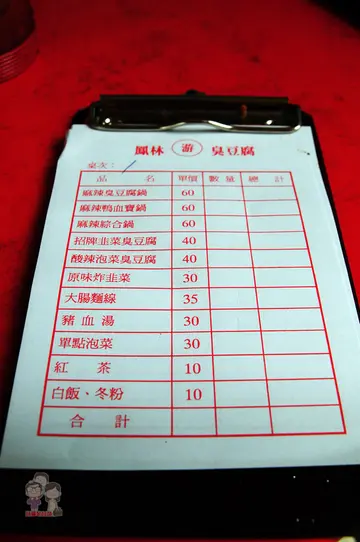 鳳林 游 臭豆腐
桌次：/
品名 單價 數量 總計
麻辣臭豆腐鍋 60
麻辣鴨血寶鍋 60
麻辣綜合鍋 60
招牌韭菜臭豆腐 40
酸辣泡菜臭豆腐 40
原味炸韭菜 30
大腸麵線 35
豬血湯 30
單點泡菜 30
紅茶 10
白飯、冬粉 10
合計